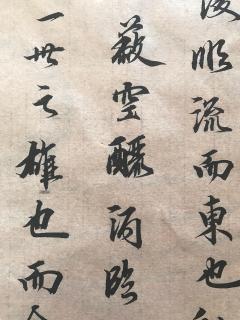 順流而東也
蔽空釃酒臨
一世之雄也而今